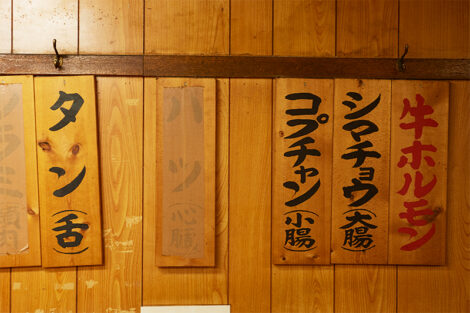 牛ホルモン
シマチョウ(大腸)
コプチャン(小腸)
ハツ(心臓)
タン(舌)